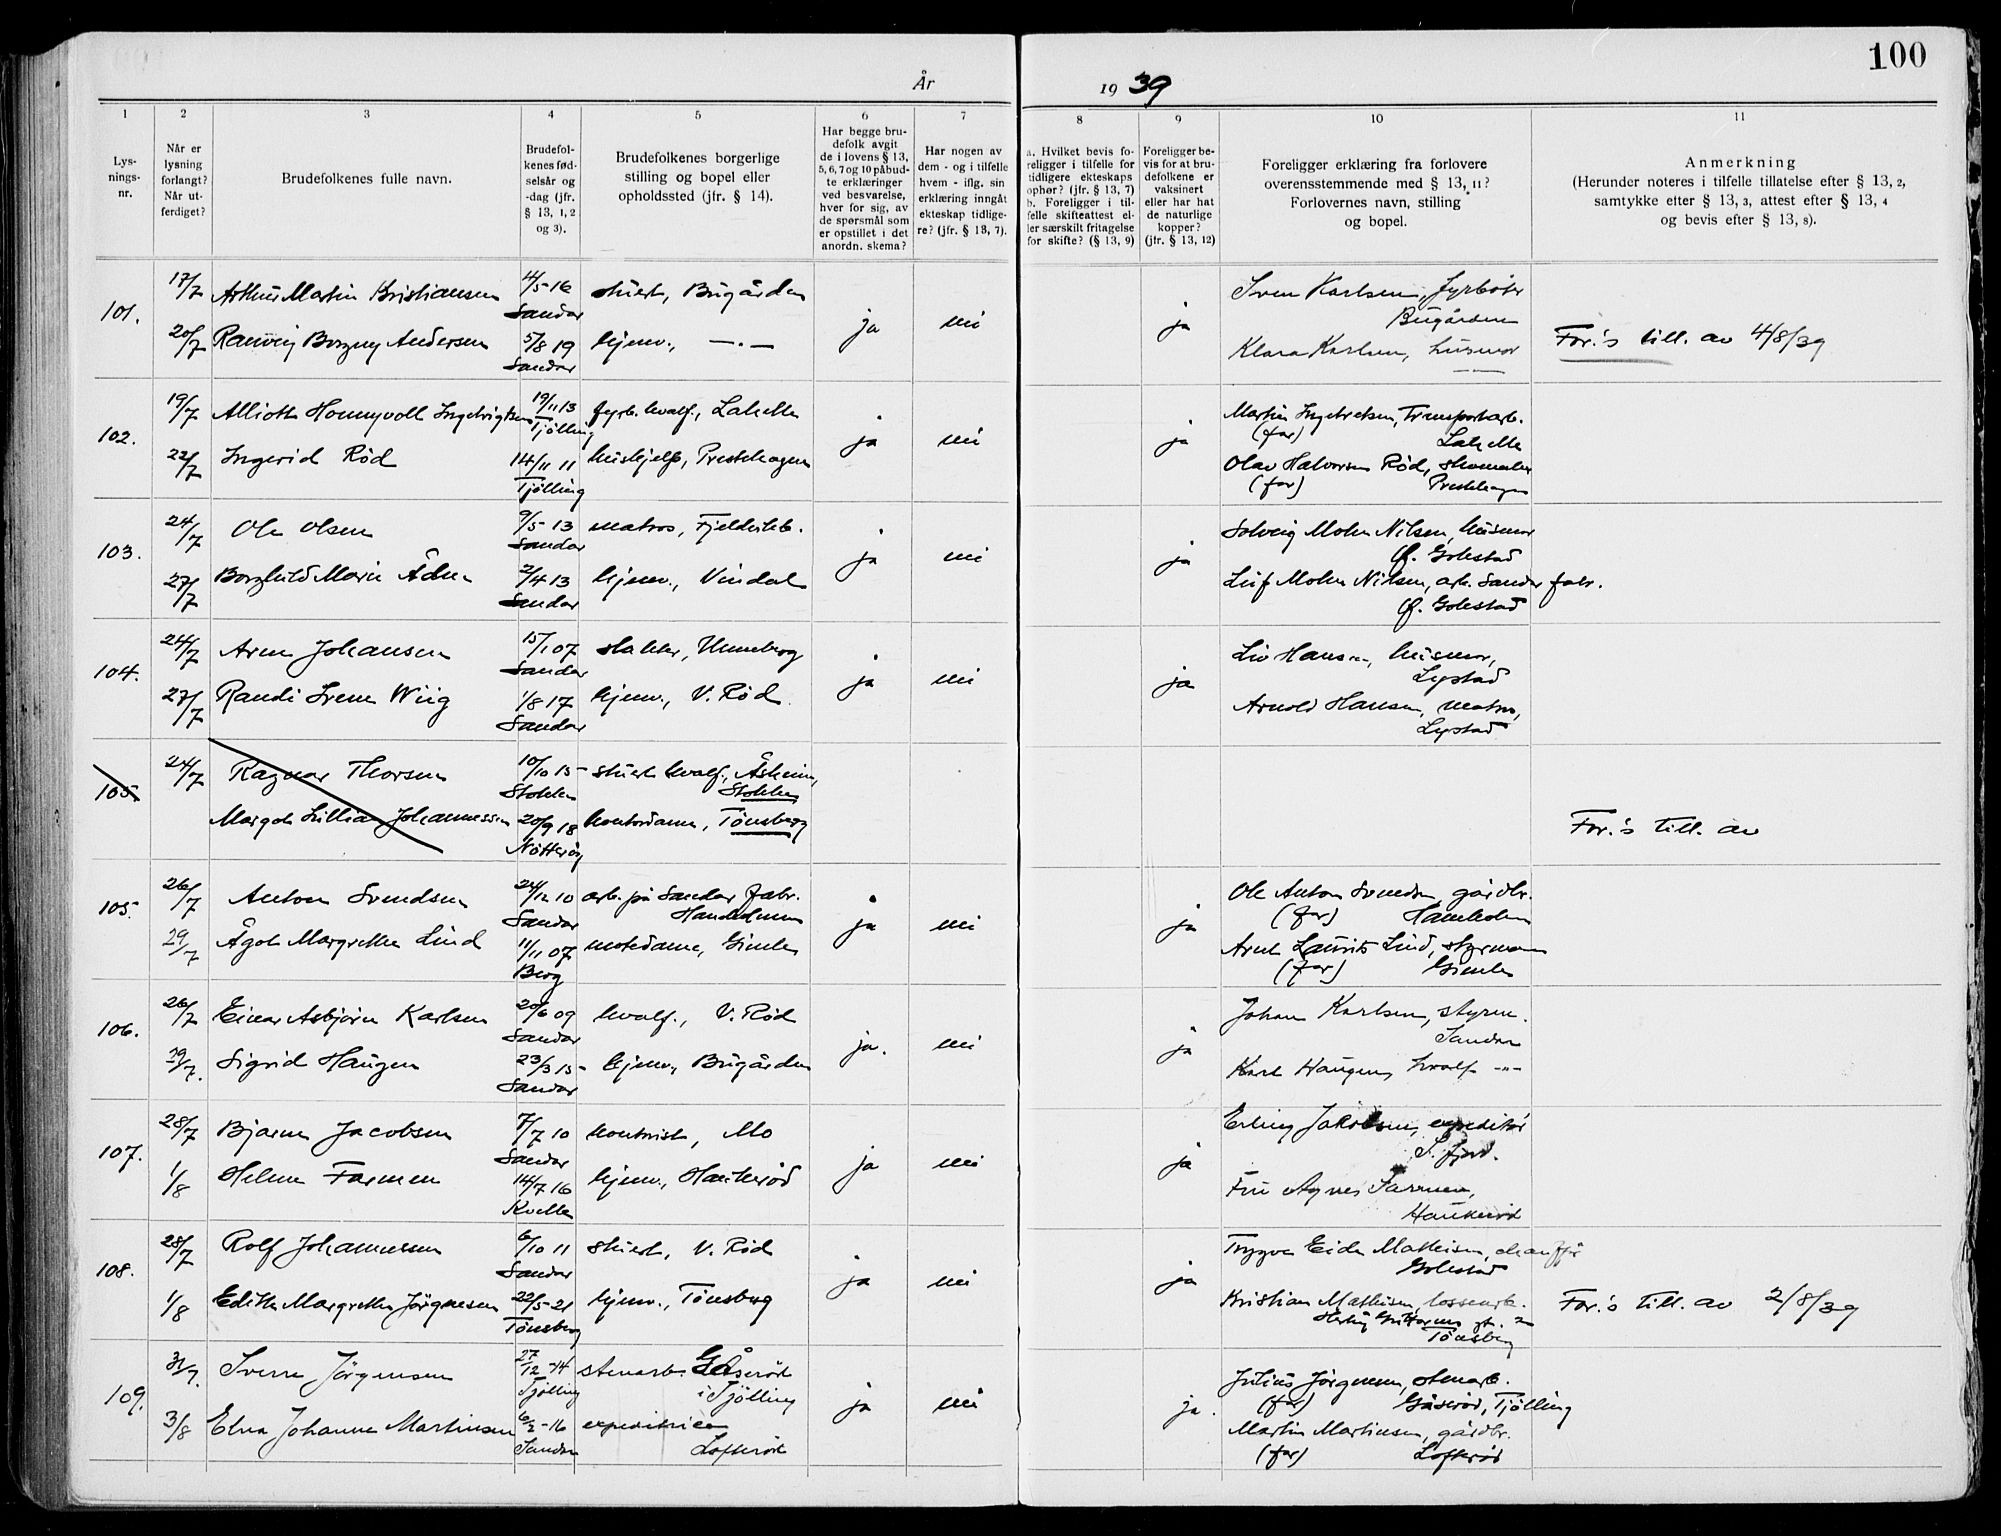 100
År 1939
1 2 3 4 5 6 7 8 9 10 11
Lys-
nings-
nr.
Når er
lysning
forlangt?
Når ut-
ferdiget?
Brudefolkenes fulle navn.
Brudefol-
kenes fød-
selsår og
-dag (jfr.
§ 13, 1, 2
og 3).
Brudefolkenes borgerlige
stilling og bopel eller
opholdssted (jfr. § 14).
Har begge bru-
defolk avgit
de i lovens § 13,
5, 6, 7 og 10 påbud-
te erklæringer
ved besvarelse,
hver for sig, av
de spørsmål som
er opstillet i det
anordn. skema?
Har nogen av
dem - og i tilfelle
hvem - iflg. sin
erklæring inngåt
ekteskap tidlige-
re? (jfr. § 13, 7).
a. Hvilket bevis fo-
religger i tilfelle for
tidligere ekteskaps
ophør? (jfr. § 13, 7)
b. Foreligger i til-
felle skifteattest el-
ler særskilt fritagelse
for skifte? (§ 13, 9)
Foreligger be-
vis for at bru-
defolkene er
vaksinert
eller har hat
de naturlige
kopper?
(jfr. § 13, 12)
Foreligger erklæring fra forlovere
overensstemmende med § 13, 11?
Forlovernes navn, stilling
og bopel.
Anmerkning
(Herunder noteres i tilfelle tillatelse efter § 13, 2,
samtykke etter § 13, 3, attest efter § 13, 4
og bevis efter § 13, 8).
101.
17/7 Arthur Martin Kristiansen 4/5-16 stuert, Bugården
Sandar
20/7 Ranveig Borgny Andersen 5/8 19 hjemv., —.—
Sandar
ja nei ja
Sven Karlsen, fyrbøter
Bugården
Klara Karlsen, husmor
For.'s till. av 4/8/39
102.
19/7 19/11 13 fyrb. hvalf., Lahelle
Tjølling
22/7 Ingerid Röd 14/11 11 hushjelp, Prestehagen
Tjølling
ja nei ja
Martin Ingebretsen, Transportarb.
(far) Lahelle
Olav Halvorsen Röd, skomaker
(far) Prestehagen
103.
24/7 Ole Olsen 9/5-13 matros, Fjeldvik
Sandar
27/7 Borghild Marie Ådne 2/4 13 hjemv., Vindal
Sandar
ja nei ja
Solveig Mohn Nilsen, husmor
Ø. Gokstad
Leif Mohn Nilsen, arb. Sandar fabr.
Ø. Gokstad
104.
24/7 Arne Johansen 15/1 07 slakter, Unneberg
Sandar
27/7 Randi Irene Wiig 1/8 17 hjemv., V. Röd
Sandar
ja nei ja
Liv Hansen, husmor,
Lystad
Arnold Hansen, matros,
Lystad
105
24/7 Ragnar Thorsen 10/10 15 stuert hvalf., Åsheim,
Stokke Stokke
Margot Lillian Johannessen 20/9 18 kontordame, Tönsberg
Nötteröy
For.'s till. av
105.
26/7 Anton Svendsen 24/12 10 arb. på Sandar fabr.
Sandar
29/7 Ågot Margrethe Lind 11/11 07 motedame, Gimle
Berg
ja nei ja
Ole Anton Svendsen, gårdbr.
(far)
Arnt Laurits Lind, styrmann
(far) Gimle
106.
26/7 Einar Asbjörn Karlsen 20/6 09 hvalf., V. Röd
Sandar
29/7. Sigrid Haugen 23/3 15 hjemv., Bugården
Sandar
ja. nei ja
Johan Karlsen, styrm.
Sandar
Karl Haugen, hvalf -"-
107.
28/7 Bjarne Jacobsen 7/7 10 kontorist, Mo
Sandar
1/8 Helene Farmen 14/7 16 hjemv., Haukeröd
Kvelle
ja nei ja
Erling Jakobsen, expeditör
S.fjord.
Fru Agnes Farmen,
Haukeröd
108.
28/7 Rolf Johannessen 6/10 11 stuert, V. Röd
Sandar
1/8 Edith Margrethe Jörgensen 22/5-21 hjemv., Tönsberg
Tönsberg
ja nei ja
Trygve Eide Mathisen, chauffør
Gokstad
Kristian Mathisen, lossearb.
Tönsberg
For.'s till. av 2/8/39
109.
31/7. Sverre Jörgensen 27/12-14 stenarb. Gåseröd
Tjølling i Tjölling
3/8 Elna Johanne Martinsen 6/2-16 expeditrice
Sandar Lofteröd
ja nei ja.
Julius Jörgensen, stenarb.
(far) Gåseröd, Tjölling
Martin Martinsen, gårdbr.
(far) Lofteröd